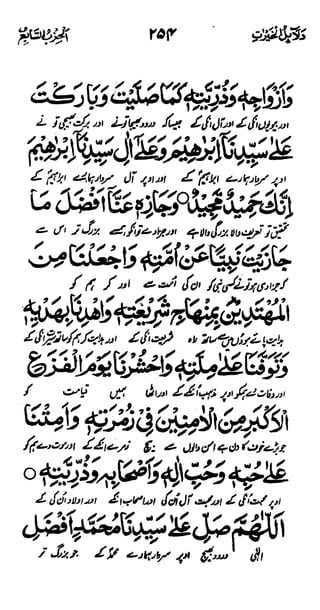 دلائل الخیرات ۲۵۴ الحزب السابع
وَاَزْوَاجِهٖ وَذُرِّيَّتِهٖ كَمَا صَلَّيْتَ وَبَارَكْتَ
اور بیویوں انکی کے اور آل انکی کے جیسا کہ درود بھیجا تونے اور برکت بھیجی تو نے
عَلٰى سَيِّدِنَا اِبْرٰهِيْمَ وَعَلٰى اٰلِ سَيِّدِنَا اِبْرٰهِيْمَ
اوپر سردار ہمارے ابراہیم کے اور اوپر آل سردار ہمارے ابراہیم کے
اِنَّكَ حَمِيْدٌ مَّجِيْدٌ ○ وَجَازِهٖ عَنَّا اَفْضَلَ مَا
تحقیق تو تعریف والا بزرگی والا ہے اور جزا دے تو انکو ہمسے بزرگ تر اس سے
جَازَيْتَ نَبِيًّا عَنْ اُمَّتِهٖ وَاجْعَلْنَا مِنَ
جو جزا دی ہو تونے کسی نبی کو ان کی امت سے اور کر ہم کو
الْمُهْتَدِيْنَ بِمِنْهَاجِ شَرِيْعَتِهٖ وَاهْدِنَا بِهَدْيِهٖ
ہدایت پائے ہوؤں سے ساتھ راہ شریعت انکی کے اور ہدایت کر ہم کو ساتھ سیرت انکی کے
وَتَوَفَّنَا عَلٰى مِلَّتِهٖ وَاحْشُرْنَا يَوْمَ الْفَزَعِ
اور وفات دے ہمکو اوپر مذہب انکے کے اور اٹھا ہمیں قیامت کو
الْاَكْبَرِ مِنَ الْاٰمِنِيْنَ فِيْ زُمْرَتِهٖ وَاَمِتْنَا
جو بڑے خوف کا دن ہے امن والوں سے بیچ زمرے انکے کے اور موت دے ہم کو
عَلٰى حُبِّهٖ وَحُبِّ اٰلِهٖ وَاَصْحَابِهٖ وَذُرِّيَّتِهٖ ○
اوپر محبت انکی کے اور محبت آل ان کی اور اصحاب انکے اور اولاد ان کی کے
اَللّٰهُمَّ صَلِّ عَلٰى سَيِّدِنَا مُحَمَّدٍ اَفْضَلِ
الٰہی درود بھیج اوپر سردار ہمارے محمد کے جو بزرگ تر